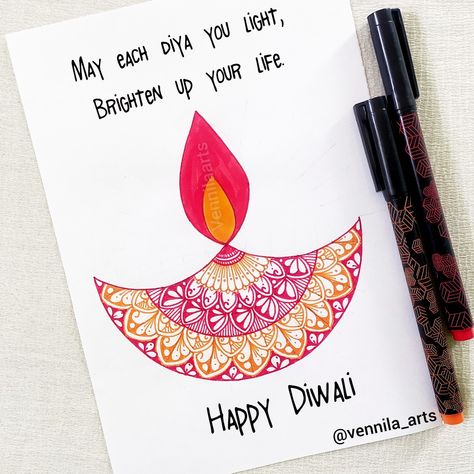 May each diya you light,
Brighten up your life.
vennilaarts
Happy Diwali
@vennila_arts